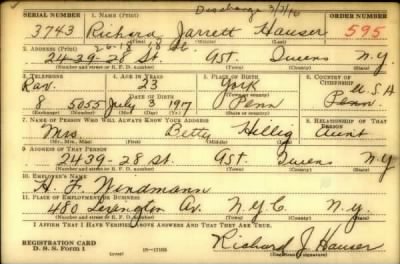 Discharge 3/3/46
SERIAL NUMBER 1. NAME (Print) ORDER NUMBER
3743 Richard Jarrett Hauser 595
(First) (Middle) (Last)
26-18 18 St.
2. ADDRESS (Print)
24-39-28 St. Ast. Queens N.Y.
(Number and street or R. F. D. number) (Town) (County) (State)
3. TELEPHONE 4. AGE IN YEARS 5. PLACE OF BIRTH 6. COUNTRY OF CITIZENSHIP
Rav. 23 York U.S.A
DATE OF BIRTH (Town or county)
8 5055 July 3 1917 Penn Penn.
(Exchange) (Number) (Mo.) (Day) (Yr.) (State or country)
7. NAME OF PERSON WHO WILL ALWAYS KNOW YOUR ADDRESS 8. RELATIONSHIP OF THAT PERSON
Mrs. Betty Hellig Aunt
(Mr., Mrs., Miss) (First) (Middle) (Last)
9. ADDRESS OF THAT PERSON
2439-28 St. Ast. Queens NY
(Number and street or R. F. D. number) (Town) (County) (State)
10. EMPLOYER'S NAME
H. F. Windmann
11. PLACE OF EMPLOYMENT OR BUSINESS
480 Lexington Av. N.Y.C. N.y.
(Number and street or R. F. D. number) (Town) (County) (State)
I AFFIRM THAT I HAVE VERIFIED ABOVE ANSWERS AND THAT THEY ARE TRUE.
REGISTRATION CARD
D. S. S. Form 1 Richard J. Hauser
(Registrant's signature)